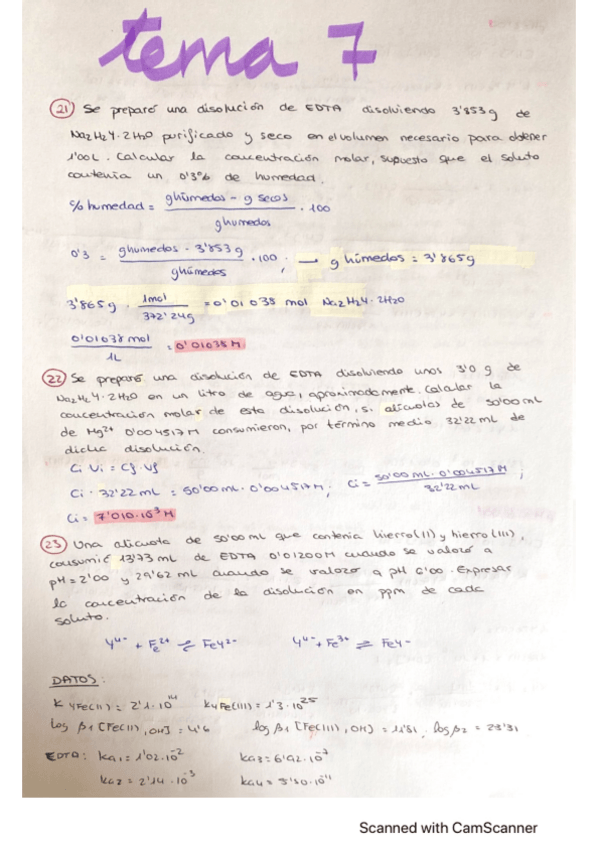 tema 7
21 Se preparó una disolución de EDTA disolviendo 3'853 g de
Na2H2Y·2H2O purificado y seco en el volumen necesario para obtener
1'00L. Calcular la concentración molar, supuesto que el soluto
contenía un 0'3% de humedad.
% humedad = (g húmedos - g secos / g humedos) · 100
0'3 = (g humedos - 3'853 g / g húmedos) · 100 ; → g húmedos = 3'865g
3'865g · 1mol / 372'24g = 0'01038 mol Na2H2Y·2H2O
0'01038 mol / 1L = 0'01038 M
22 Se preparó una disolución de EDTA disolviendo unos 3'0 g de
Na2H2Y·2H2O en un litro de agua, aproximadamente. Calcular la
concentración molar de esta disolución, si alícuotas de 50'00 mL
de Mg2+ 0'004517M consumieron, por término medio 32'22 mL de
dicha disolución.
Ci Vi = Cf · Vf
Ci · 32'22 mL = 50'00 mL · 0'004517M ; Ci = 50'00 mL · 0'004517M / 32'22 mL ;
Ci = 7'010·10-3 M
23 Una alicuota de 50'00 mL que contenía hierro(II) y hierro (III),
consumió 13'73 mL de EDTA 0'01200M cuando se valoró a
pH = 2'00 y 29'62 mL cuando se valoró a pH 6'00. Expresar
la concentración de la disolución en ppm de cada
soluto.
Y4- + Fe2+ ⇌ FeY2- Y4- + Fe3+ ⇌ FeY-
DATOS:
K YFe(II) = 2'1·10 14 KYFe(III) = 1'3·10 25
log β1 [Fe(II), OH] = 4'6 log β1 [Fe(III), OH] = 11'81 log β2 = 23'31
EDTA: Ka1 = 1'02·10-2 Ka3 = 6'92·10-7
Ka2 = 2'14·10-3 Ka4 = 5'50·10-11
Scanned with CamScanner